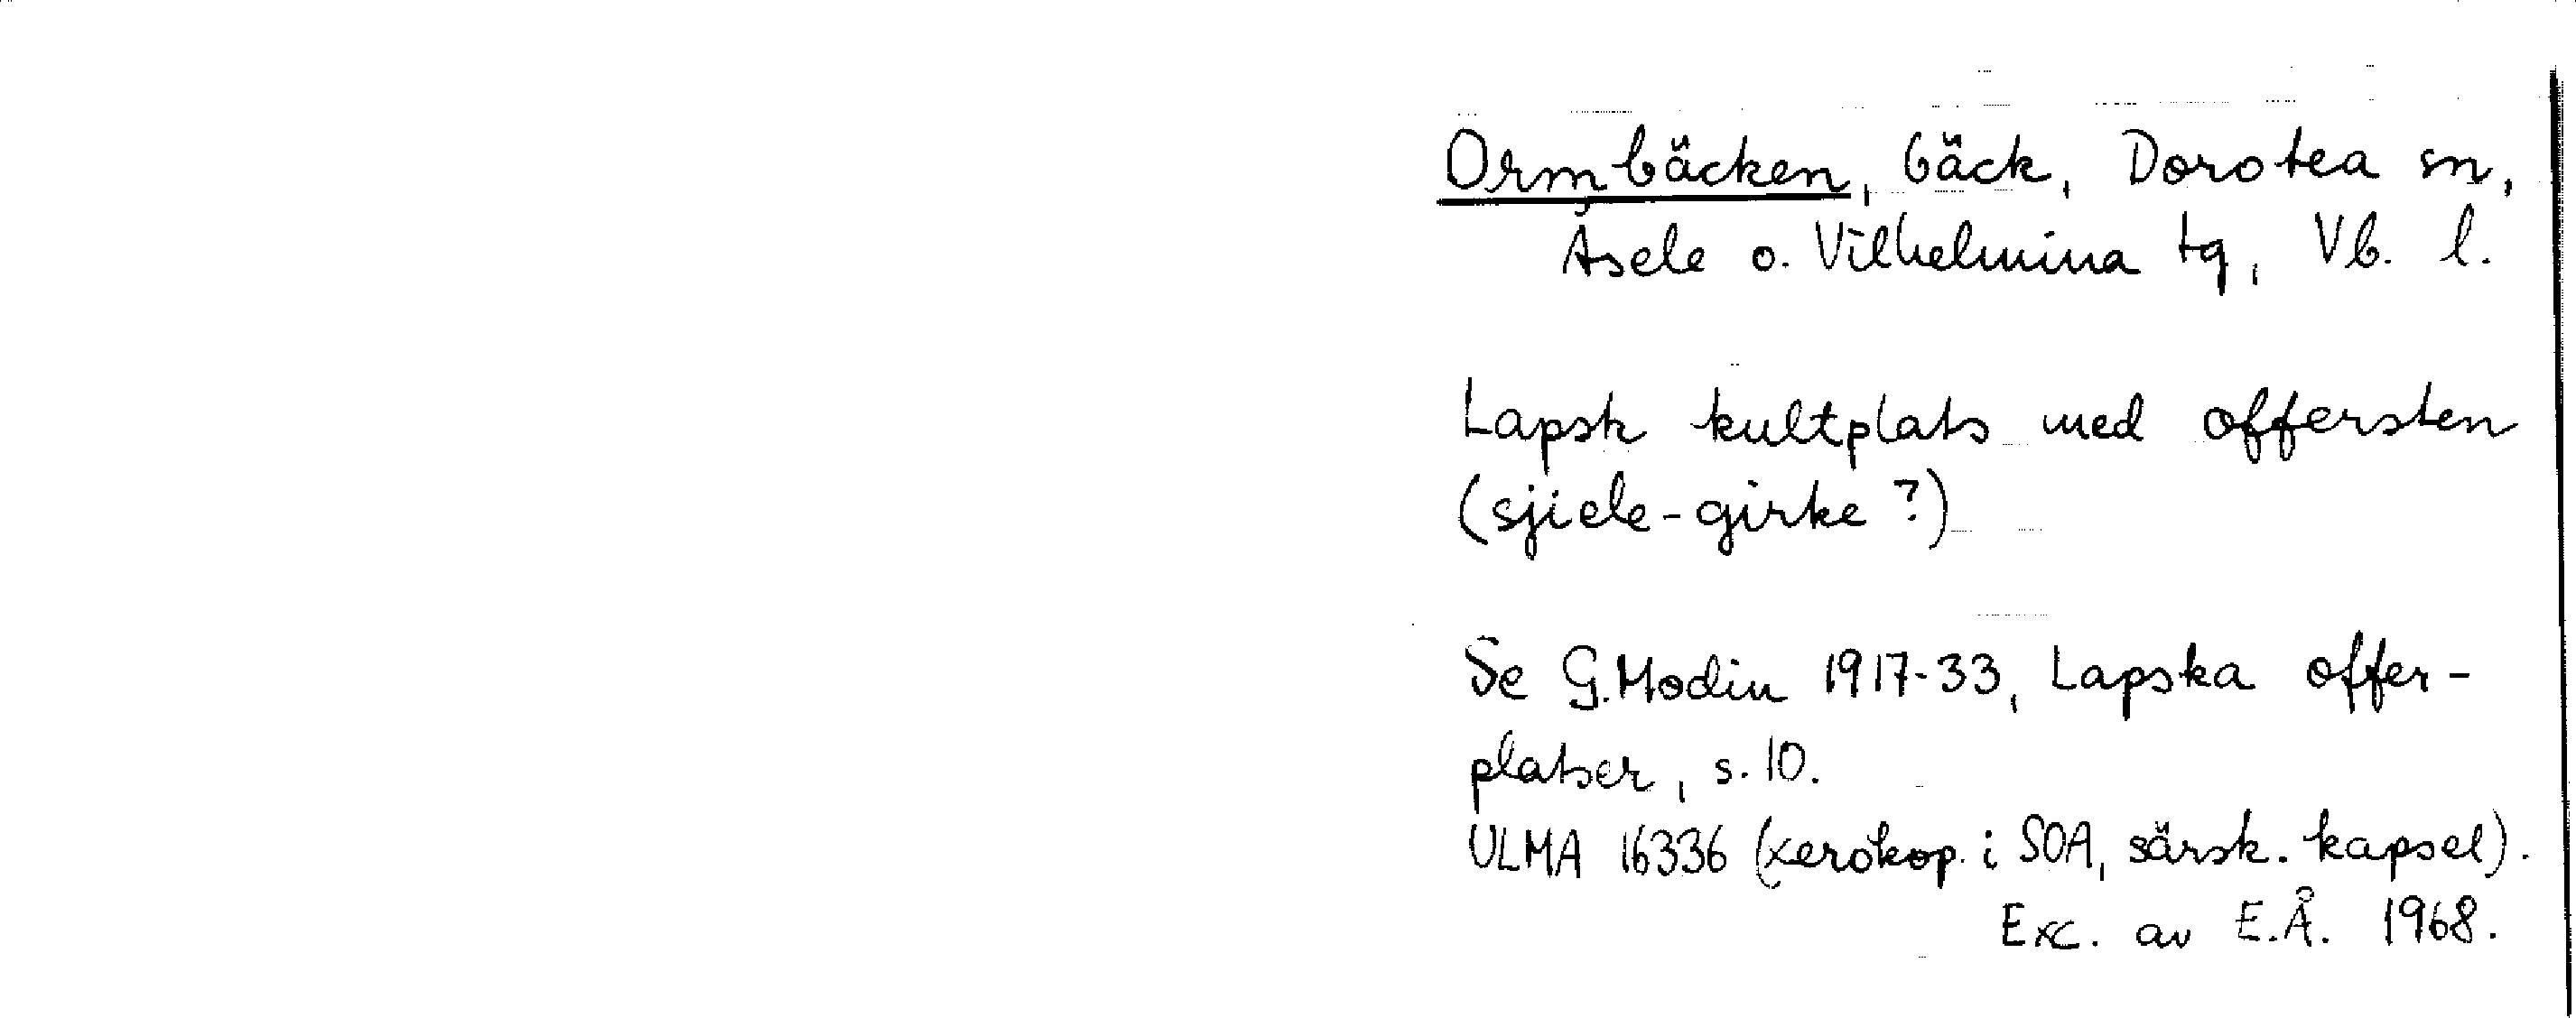 Ormbäcken, bäck, Dorotea sn,
Åsele o. Vilhelmina tg, Vb. l.
Lapsk kultplats med offersten
(sjiele-girke?)
Se G. Modin 1917-33, Lapska offer-
platser, s. 10.
ULMA 16336 (xerokop. i SOA, särsk. kapsel).
Exc. av E.Å. 1968.